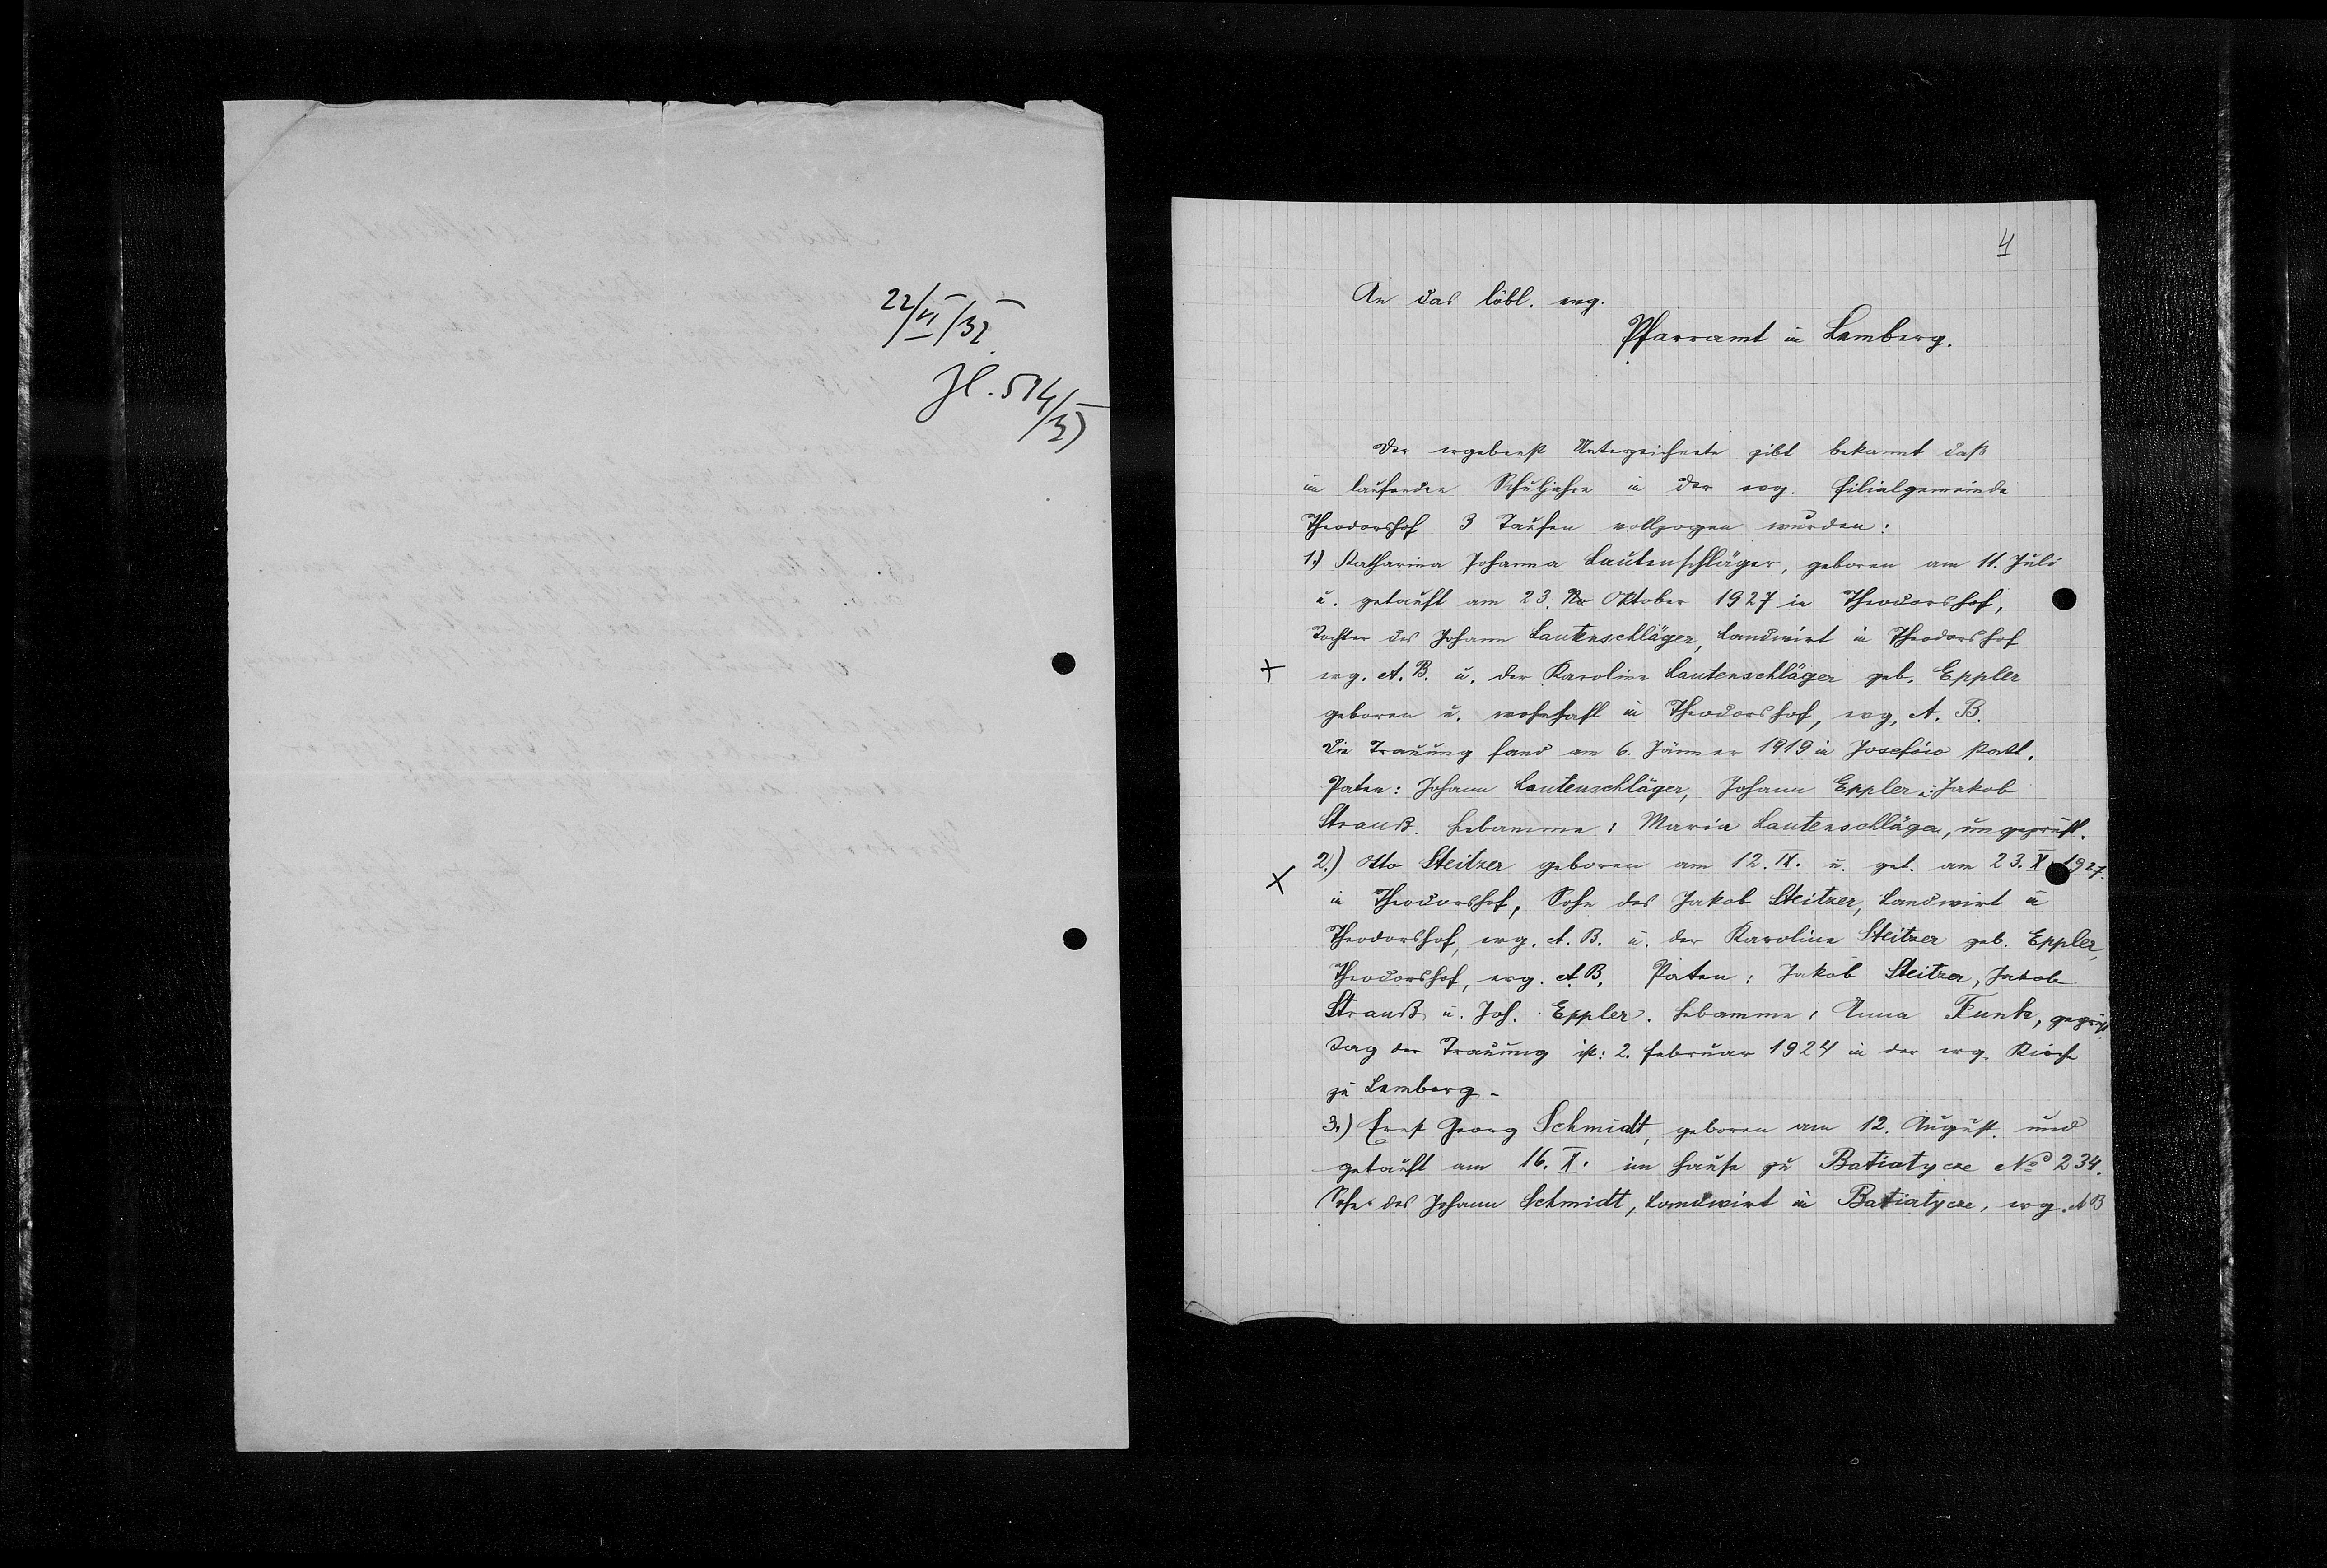 22/VI/32.
Zl. 514/32
4
An das löbl. evg.
Pfarramt in Lemberg.
Der ergebenst Unterzeichnete gibt bekannt daß
im laufenden Schuljahre in der evg. Filialgemeinde
Theodorshof 3 Taufen vollzogen wurden:
1.) Katharina Johanna Lautenschläger, geboren am 11. Juli
u. getauft am 23. Oktober 1927 in Theodorshof,
Tochter des Johann Lautenschläger, Landwirt in Theodorshof
+ evg. A. B. u. der Karoline Lautenschläger geb. Eppler
geboren u. wohnhaft in Theodorshof, evg. A. B.
Die Trauung fand am 6. Jänner 1919 in Josefów statt.
Paten: Johann Lautenschläger, Johann Eppler u. Jakob
Strauß. Hebamme: Maria Lautenschläger, ungeprüft.
x 2.) Otto Steitzer geboren am 12. IX. u. get. am 23. X 1927.
in Theodorshof, Sohn des Jakob Steitzer, Landwirt in
Theodorshof, evg. A. B. u. der Karoline Steitzer geb. Eppler,
Theodorshof, evg. A. B. Paten: Jakob Steitzer, Jakob
Strauß u. Joh. Eppler. Hebamme: Anna Funk, geprüft.
Tag der Trauung ist: 2. Februar 1924 in der evg. Kirche
zu Lemberg.
3.) Ernst Georg Schmidt, geboren am 12. August und
getauft am 16. X. im Hause zu Batiatycze No 234.
Sohn des Johann Schmidt, Landwirt in Batiatycze, evg. A B